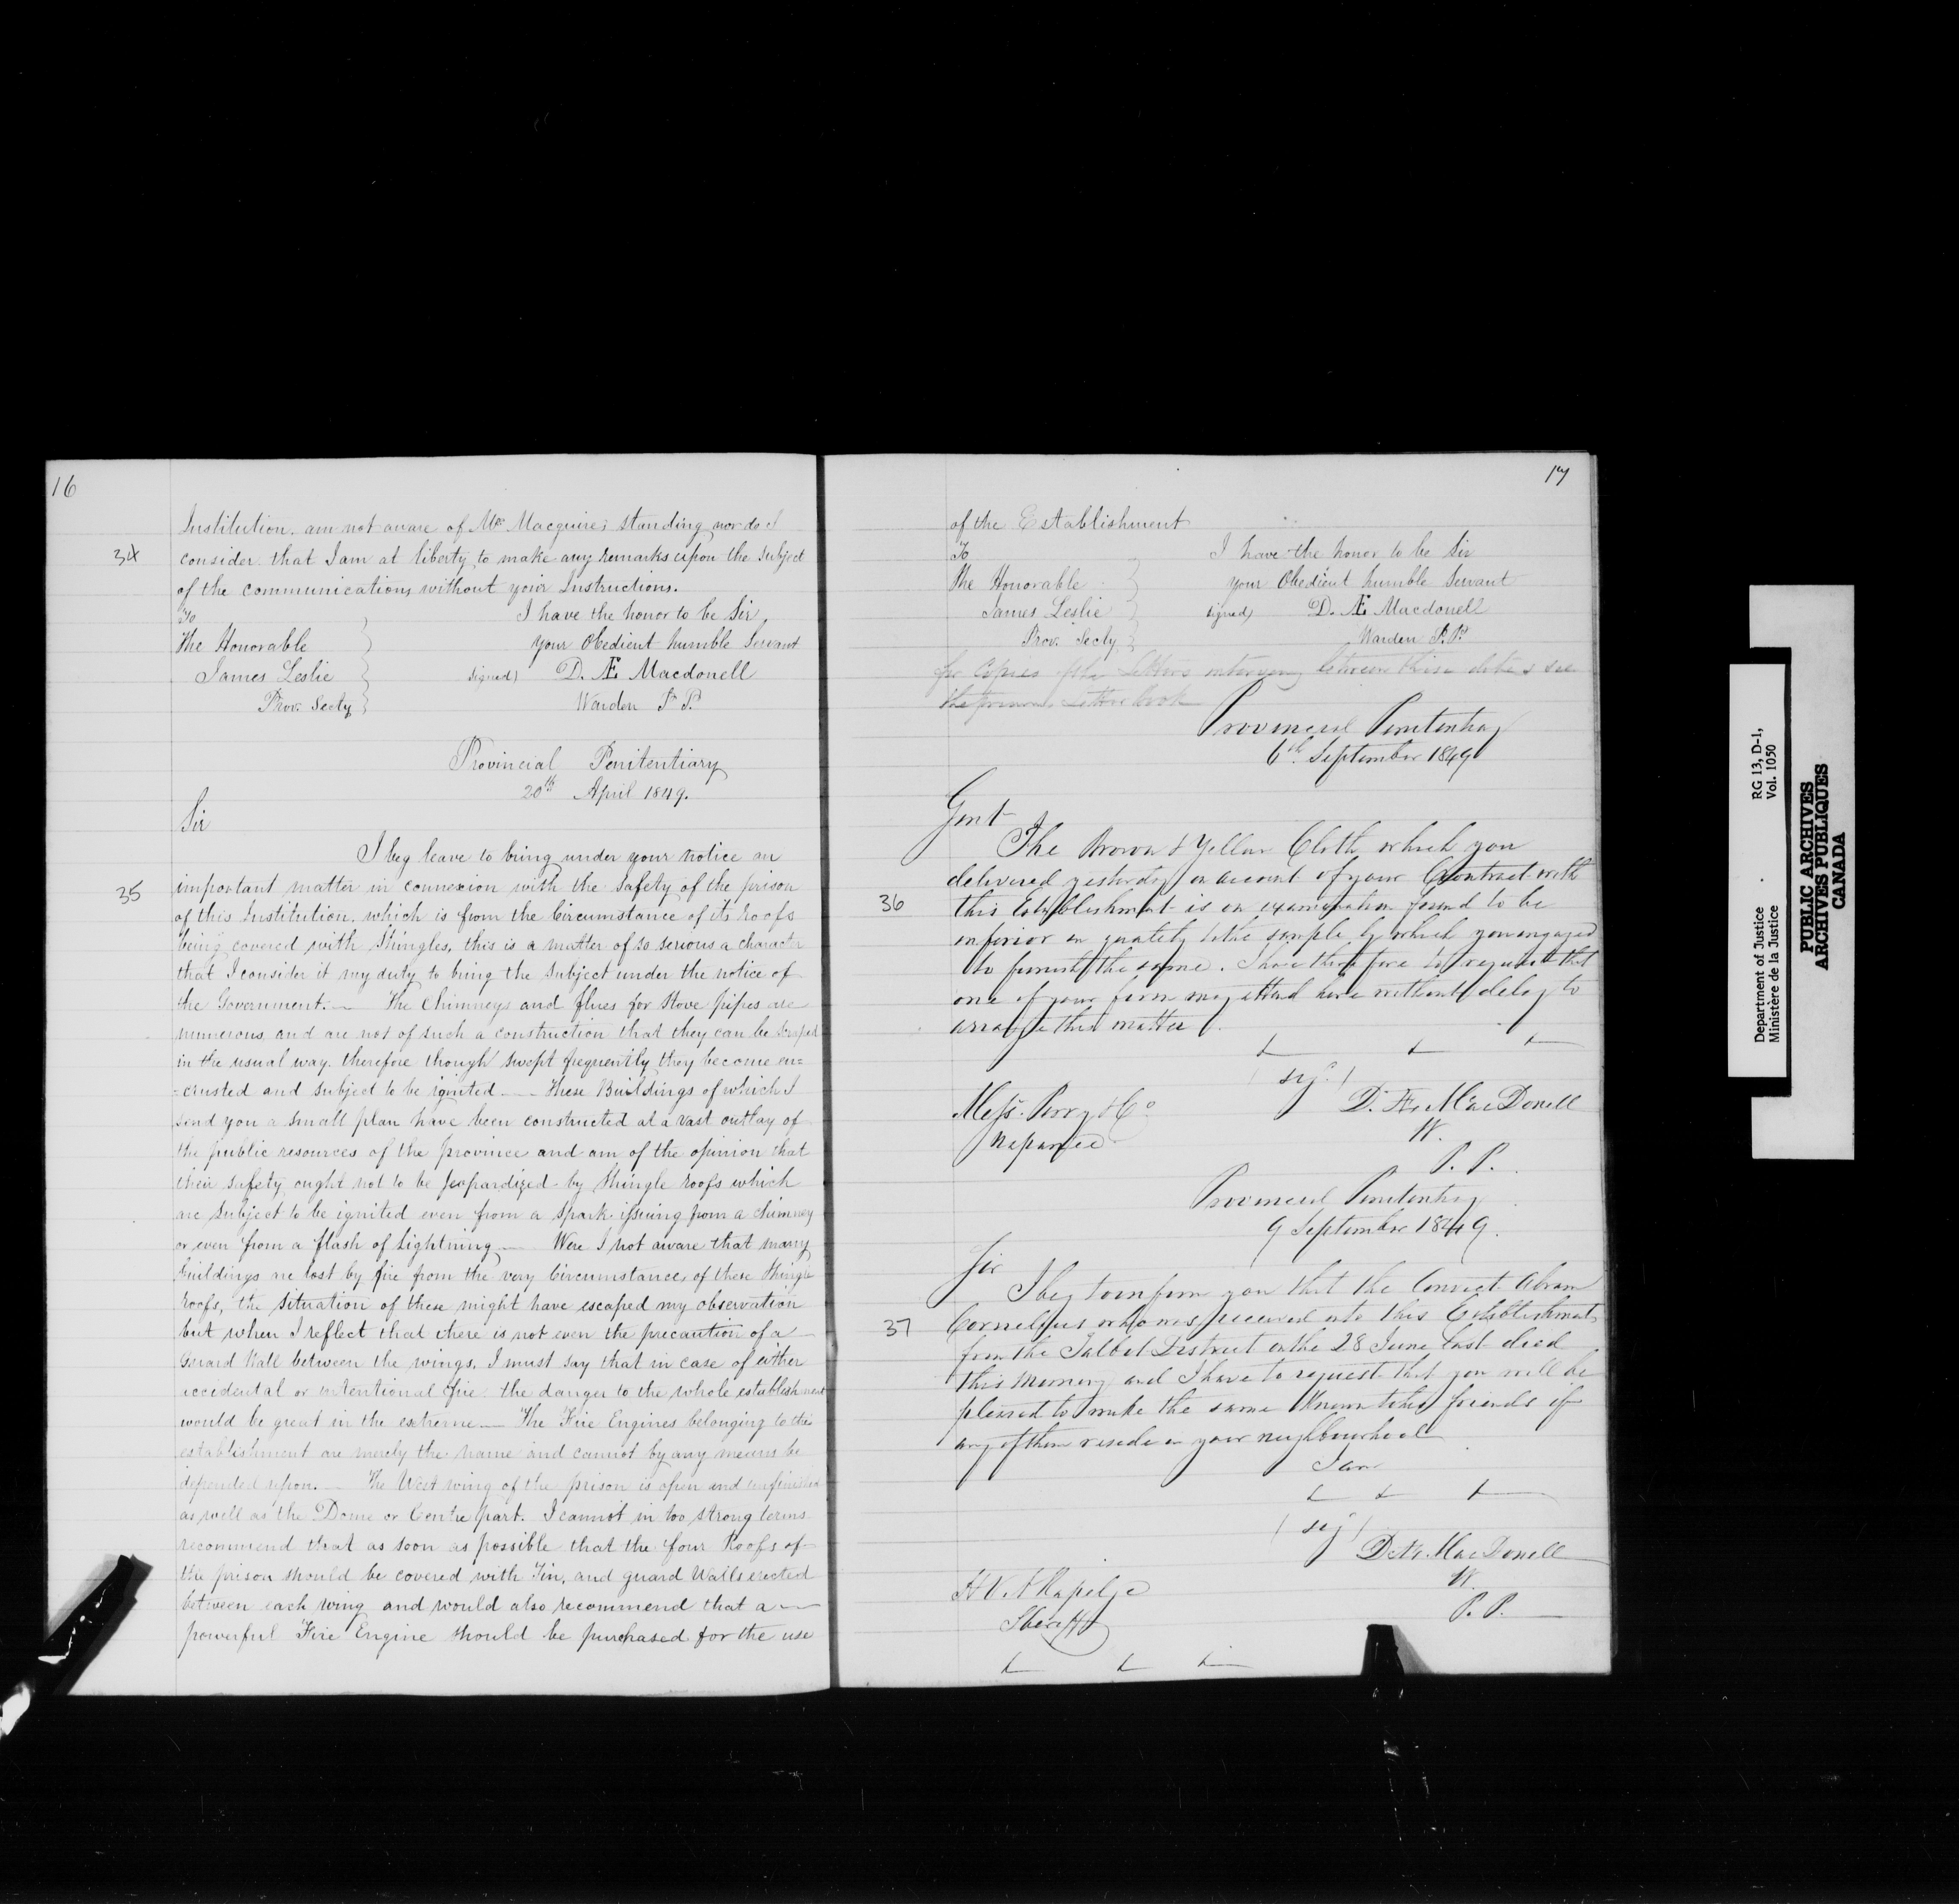 16
Institution. am not aware of Mr. Macguires standing nor do I
34
consider that I am at liberty to make any remarks upon the subject
of the communications without your Instructions.
To
I have the honor to be Sir
The Honorable
your Obedient humble Servant
James Leslie
signed) D. Æ Macdonell
Prov. Secty
Warden P. P.
Provincial Penitentiary
20th April 1849.
Sir
I beg leave to bring under your notice an
35
important matter in connexion with the safety of the prison
of this Institution. which is from the Circumstance of its roofs
being covered with Shingles, this is a matter of so serious a character
that I consider it my duty to bring the subject under the notice of
the Government. — The Chimneys and flues for Stove pipes are
numerous and are not of such a construction that they can be scraped
in the usual way. therefore though swept frequently they become en=
=crusted and subject to be ignited — These Buildings of which I
send you a small plan have been constructed at a vast outlay of
the public resources of the province and am of the opinion that
their safety ought not to be Jeopardized by Shingle roofs which
are subject to be ignited even from a spark issuing from a chimney
or even from a flash of Lightning — Were I not aware that many
buildings are lost by fire from the very Circumstance, of these Shingle
roofs, the situation of these might have escaped my observation
but when I reflect that there is not even the precaution of a
Guard Wall between the wings, I must say that in case of either
accidental or intentional fire the danger to the whole establishment
would be great in the extreme — The Fire Engines belonging to the
establishment are merely the name and cannot by any means be
depended upon. — The West wing of the prison is open and unfinished
as well as the Dome or Centre part. I cannot in too strong terms
recommend that as soon as possible that the four Roofs of
the prison should be covered with Tin, and guard Walls erected
between each wing and would also recommend that a
powerful Fire Engine should be purchased for the use
17
of the Establishment
To
I have the honor to be Sir
The Honorable
your Obedient humble Servant
James Leslie
signed) D. Æ Macdonell
Prov. Secty
Warden P.P.
for Copies of the Letters intervening between these dates see
the Letter book
Provincial Penitentiary
6th September 1849
Gent
The Brown & Yellow Cloth which you
delivered yesterday on account of your Contract with
36
this Establishment is on examination found to be
inferior in quality to the sample by which you engaged
to furnish the same. I have therefore to request that
one of your firm may attend here without delay to
arrange this matter.
( sig. )
Messrs. Perry & Co
D. Æ. MacDonell
Napanee
W.
P. P.
Provincial Penitentiary
9 September 1849.
Sir
I beg to inform you that the Convict Abram
37
Cornelius who was received into this Establishment
from the Talbot District on the 28 June last died
this Morning and I have to request that you will be
pleased to make the same Known to his friends if
any of them reside in your neighbourhood
I am
( sig )
D. Æ. MacDonell
H V. A Rapelje
W.
Sheriff
P. P.
Department of Justice RG 13, D-1,
Ministère de la Justice Vol. 1050
PUBLIC ARCHIVES
ARCHIVES PUBLIQUES
CANADA